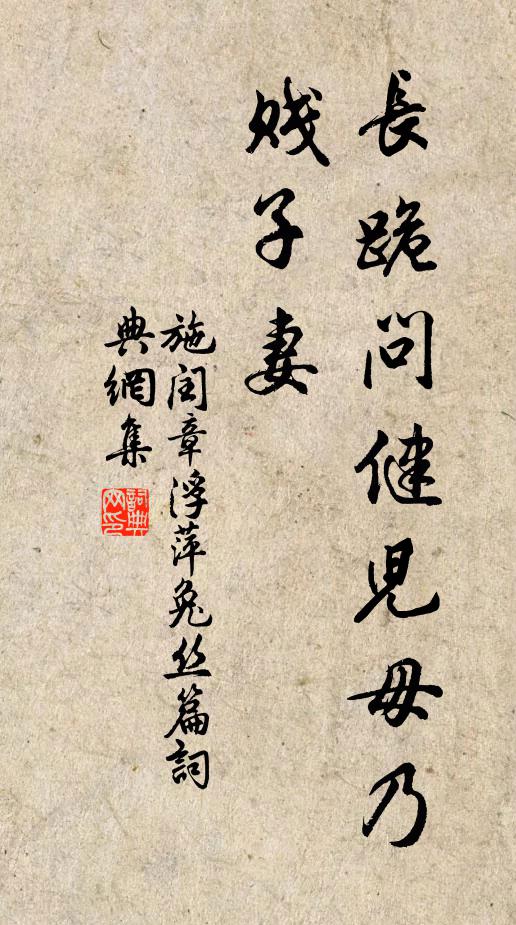 長跪問健兒毋乃
賤子妻
施闰章浮萍兔丝篇詞
典網集
詞典
网印